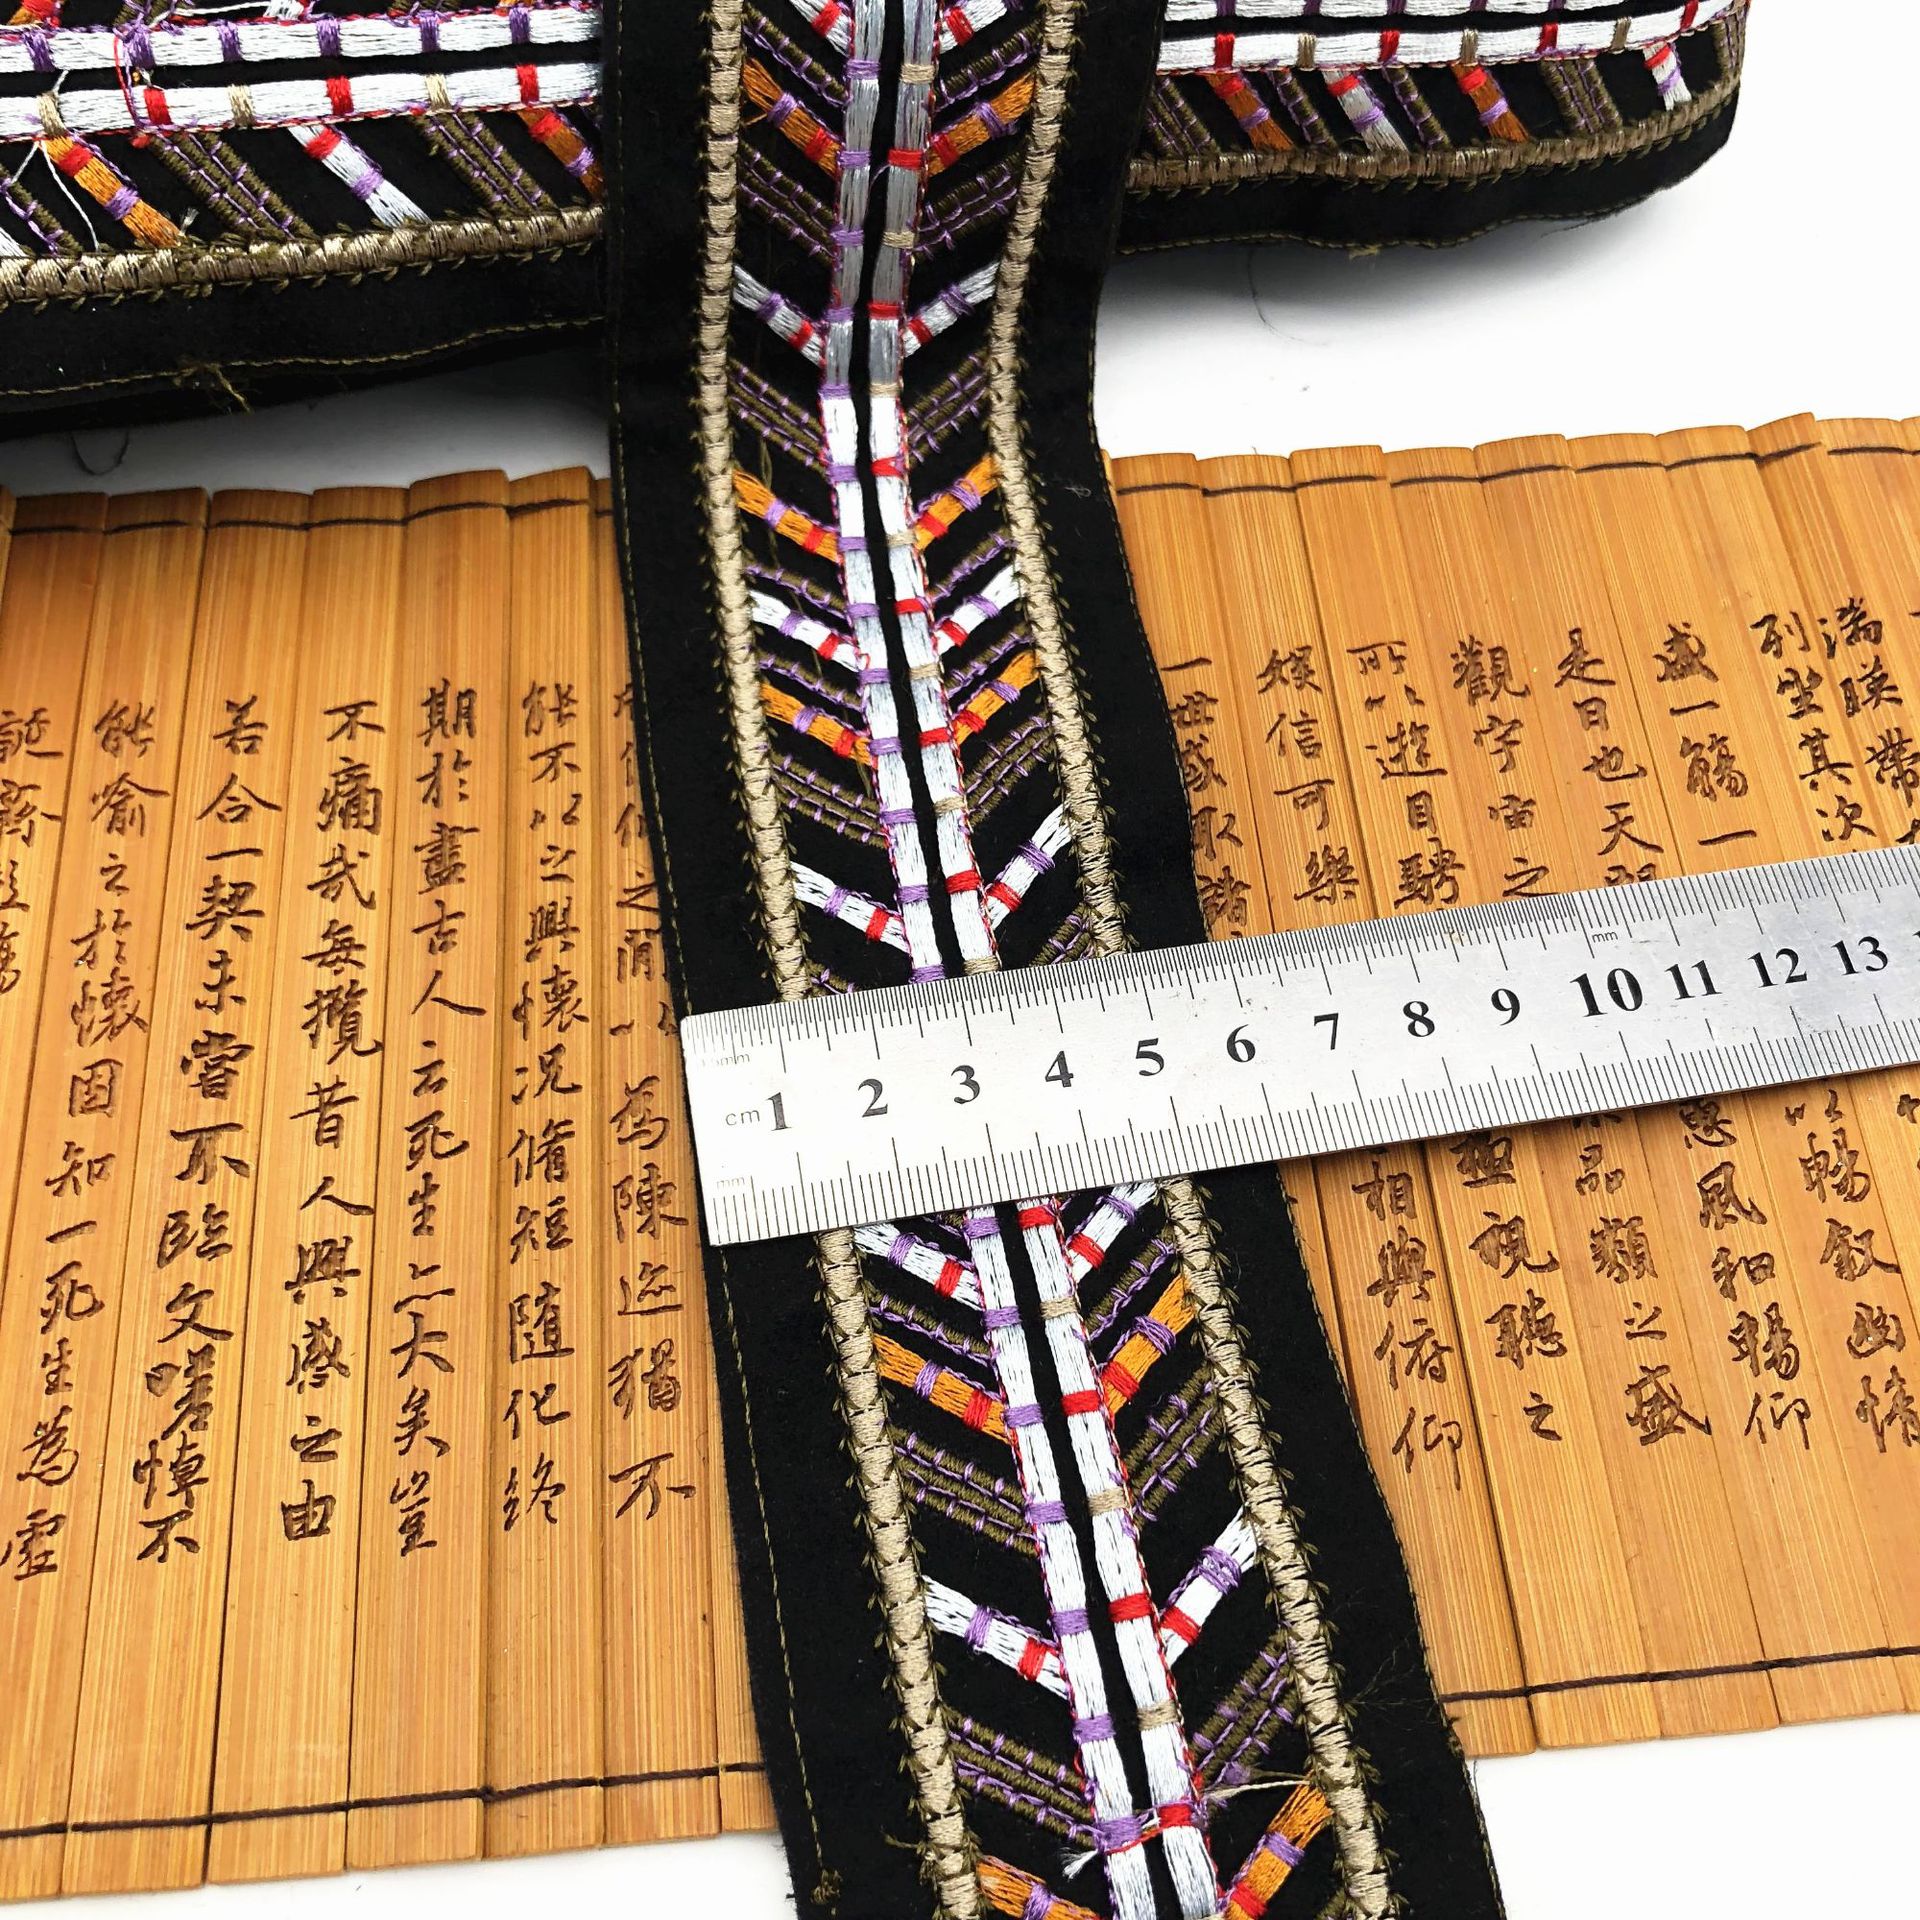 湍暎帶
列坐其次
盛一觴一
是日也天朗
觀宇宙之
所以遊目騁
娛信可樂
一世或取諸
以暢敘幽情
惠風和暢仰
品類之盛
極視聽之
相與俯仰
俛仰之間以為陳迹猶不
能不以之興懷況脩短隨化終
期於盡古人云死生亦大矣豈
不痛哉每攬昔人興感之由
若合一契未嘗不臨文嗟悼不
能喻之於懷固知一死生為虛
誕齊彭殤
mm
cm 1 2 3 4 5 6 7 8 9 10 11 12 13
mm
mm